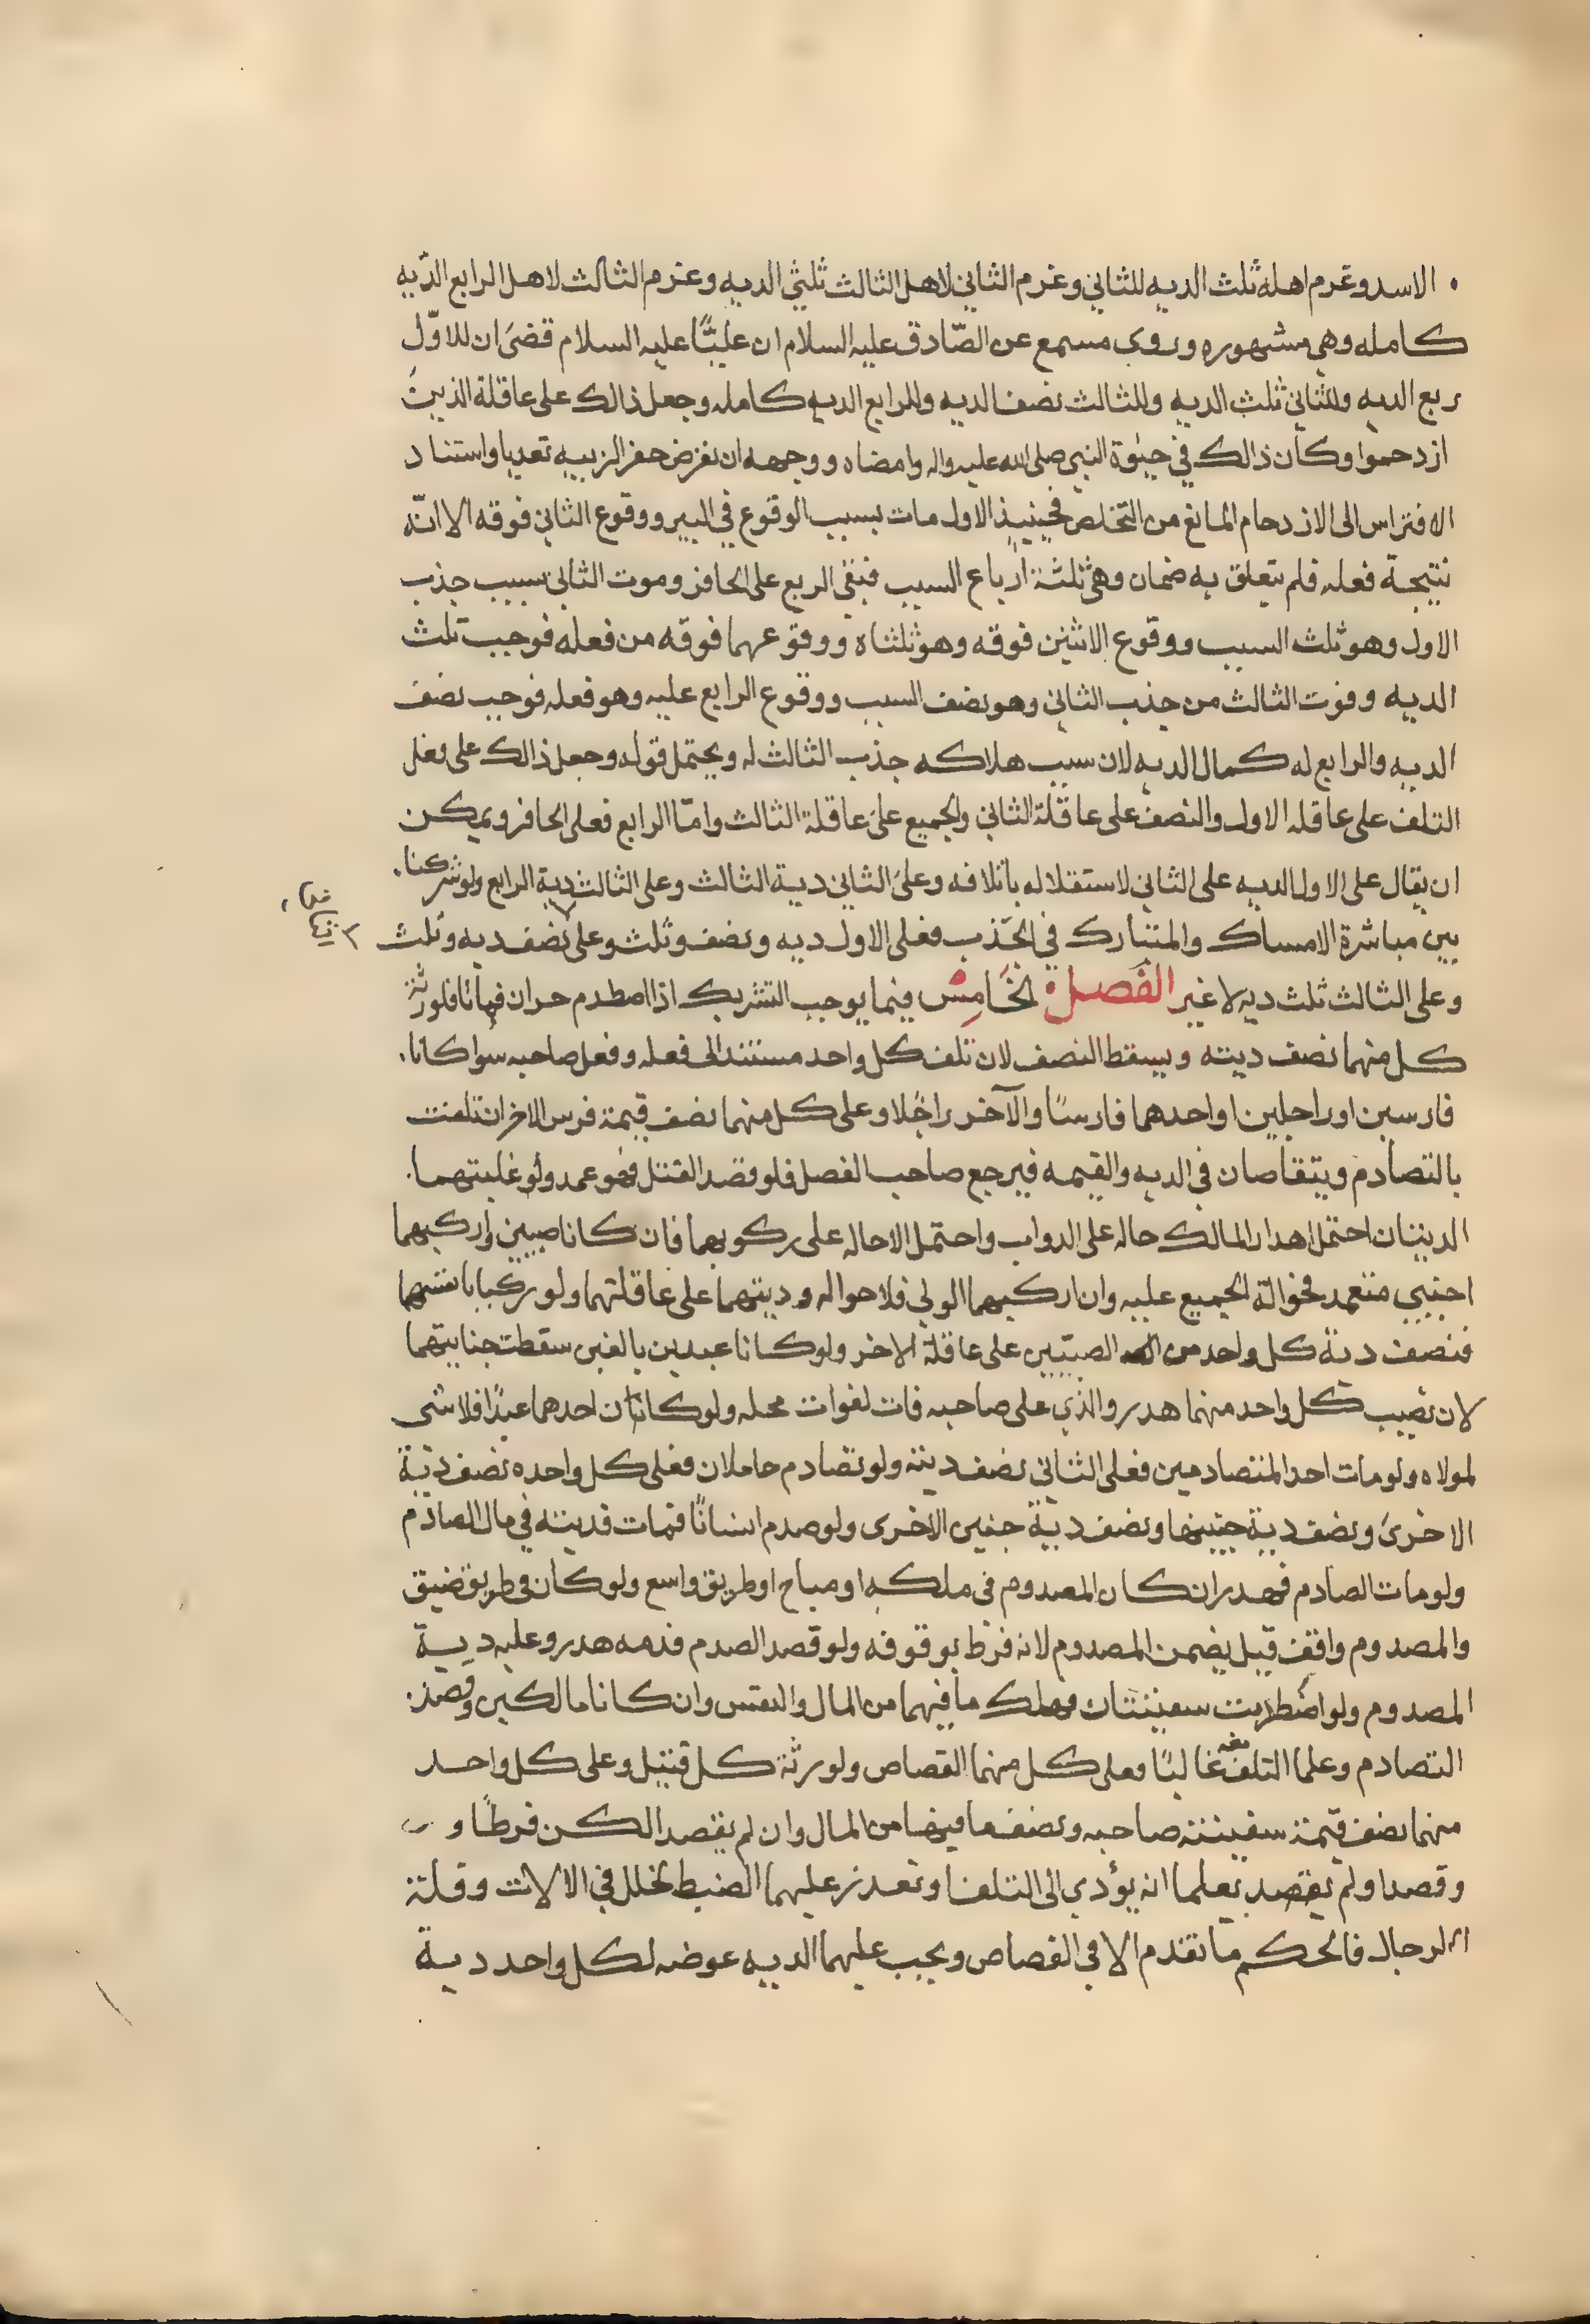 الاسد وغرم اهله ثلث الديه للثاني وغرم الثاني لاهل الثالث ثلثي الديه وغرم الثالث لاهل الرابع الدّيه
كامله وهي مشهوره وروى مسمع عن الصّادق عليه السلام ان عليًّا عليه السلام قضى ان للاوّل
ربع الديه وللثاني ثلث الديه وللثالث نصف الديه وللرابع الديه كامله وجعل ذالك على عاقلة الذين
ازدحموا وكان ذالك في حيٰوة النبي صلى الله عليه واله وامضاه ووجهه ان نفرض حفر الزبيه تعديا واستناد
الافتراس الى الازدحام المانع من التخلص فحينيذ الاول مات بسبب الوقوع في البير ووقوع الثاني فوقه الا انّه
نتيجة فعله فلم يتعلق به ضمان وهي ثلثة ارباع السبب فبقي الربع على الحافر وموت الثاني بسبب جذب
الاول وهو ثلث السبب ووقوع الاثنين فوقه وهو ثلثاه ووقوعهما فوقه من فعله فوجب ثلث
الديه وموت الثالث من جذب الثاني وهو نصف السبب ووقوع الرابع عليه وهو فعله فوجب نصف
الديه والرابع له كمال الديه لان سبب هلاكه جذب الثالث له ويحتمل قوله وجعل ذالك على
التلف على عاقله الاول والنصف على عاقلة الثاني والجميع على عاقلة الثالث وامّا الرابع فعلى الحافر ويمكن
ان يقال على الاول الديه على الثاني لاستقلاله باتلافه وعلى الثاني دية الثالث وعلى الثالث دية الرابع ولو شركنا
بين مباشرة الامساك والمشارك في الجَذب فعلى الاول ديه ونصف وثلث وعلى نصف ديه وثلث
وعلى الثالث ثلث ديه لا غير الفَصل الخَامِسْ فيما يوجب التشريك اذا اصطدم حران فماتا فلورثة
كل منهما نصف ديته ويسقط النصف لان تلف كل واحد مستند الى فعله وفعل صاحبه سوا كانا
فارسين او راجلين او احدهما فارسًا والآخر راجلا وعلى كل منهما نصف قيمة فرس الاخر ان تلفت
بالتصادم ويتقاصان في الديه والقيمه فيرجع صاحب الفضل فلو قصد القتل فهو عمد ولو غلبتهما
الدبتان احتمل اهدار الهالك حاله على الدواب واحتمل الاحاله على ركوبهما فان كانا صبيين واركبهما
اجنبي متعمد فحوالة الجميع عليه وان اركبهما الولي فلا حواله وديتهما على عاقلتهما ولو ركبا بانفسهما
فنصف دية كل واحد من الصبيّين على عاقلة الاخر ولو كانا عبدين بالغين سقطت جنايتهما
لان نصيب كل واحد منهما هدر والذي على صاحبه فات لفوات محله ولو كان احدهما عبدًا فلا شى
لمولاه ولو مات احد المتصادمين فعلى الثاني نصف ديته ولو تصادم حاملان فعلى كل واحده نصف دية
الاخرى ونصف دية جنينها ونصف دية جنين الاخرى ولو صدم انسانًا فمات فديته في مال الصادم
ولو مات الصادم فهدر ان كان المصدوم في ملكه او مباح او طريق واسع ولو كان في طريق ضيق
والمصدوم واقف قيل يضمن المصدوم لانه فرط بوقوفه ولو قصد الصدم فدمه هدر وعليه دية
المصدوم ولو اضطربت سفينتان فهلك ما فيهما من المال والنفس وان كانا مالكين وقصد
التصادم وعلما التلف معه غالبًا فعلى كل منهما القصاص ولورثة كل قتيل وعلى كل واحد
منهما نصف قيمة سفينة صاحبه ونصف ما فيها من المال وان لم يقصدا لكن فرطا و
وقصدا ولم يعلما انه يؤدي الى التلف او تعذر عليهما الضبط لخلل في الالات وقلة
الرجال فالحكم ما تقدم الا في القصاص ويجب عليهما الديه عوضه لكل واحد دية